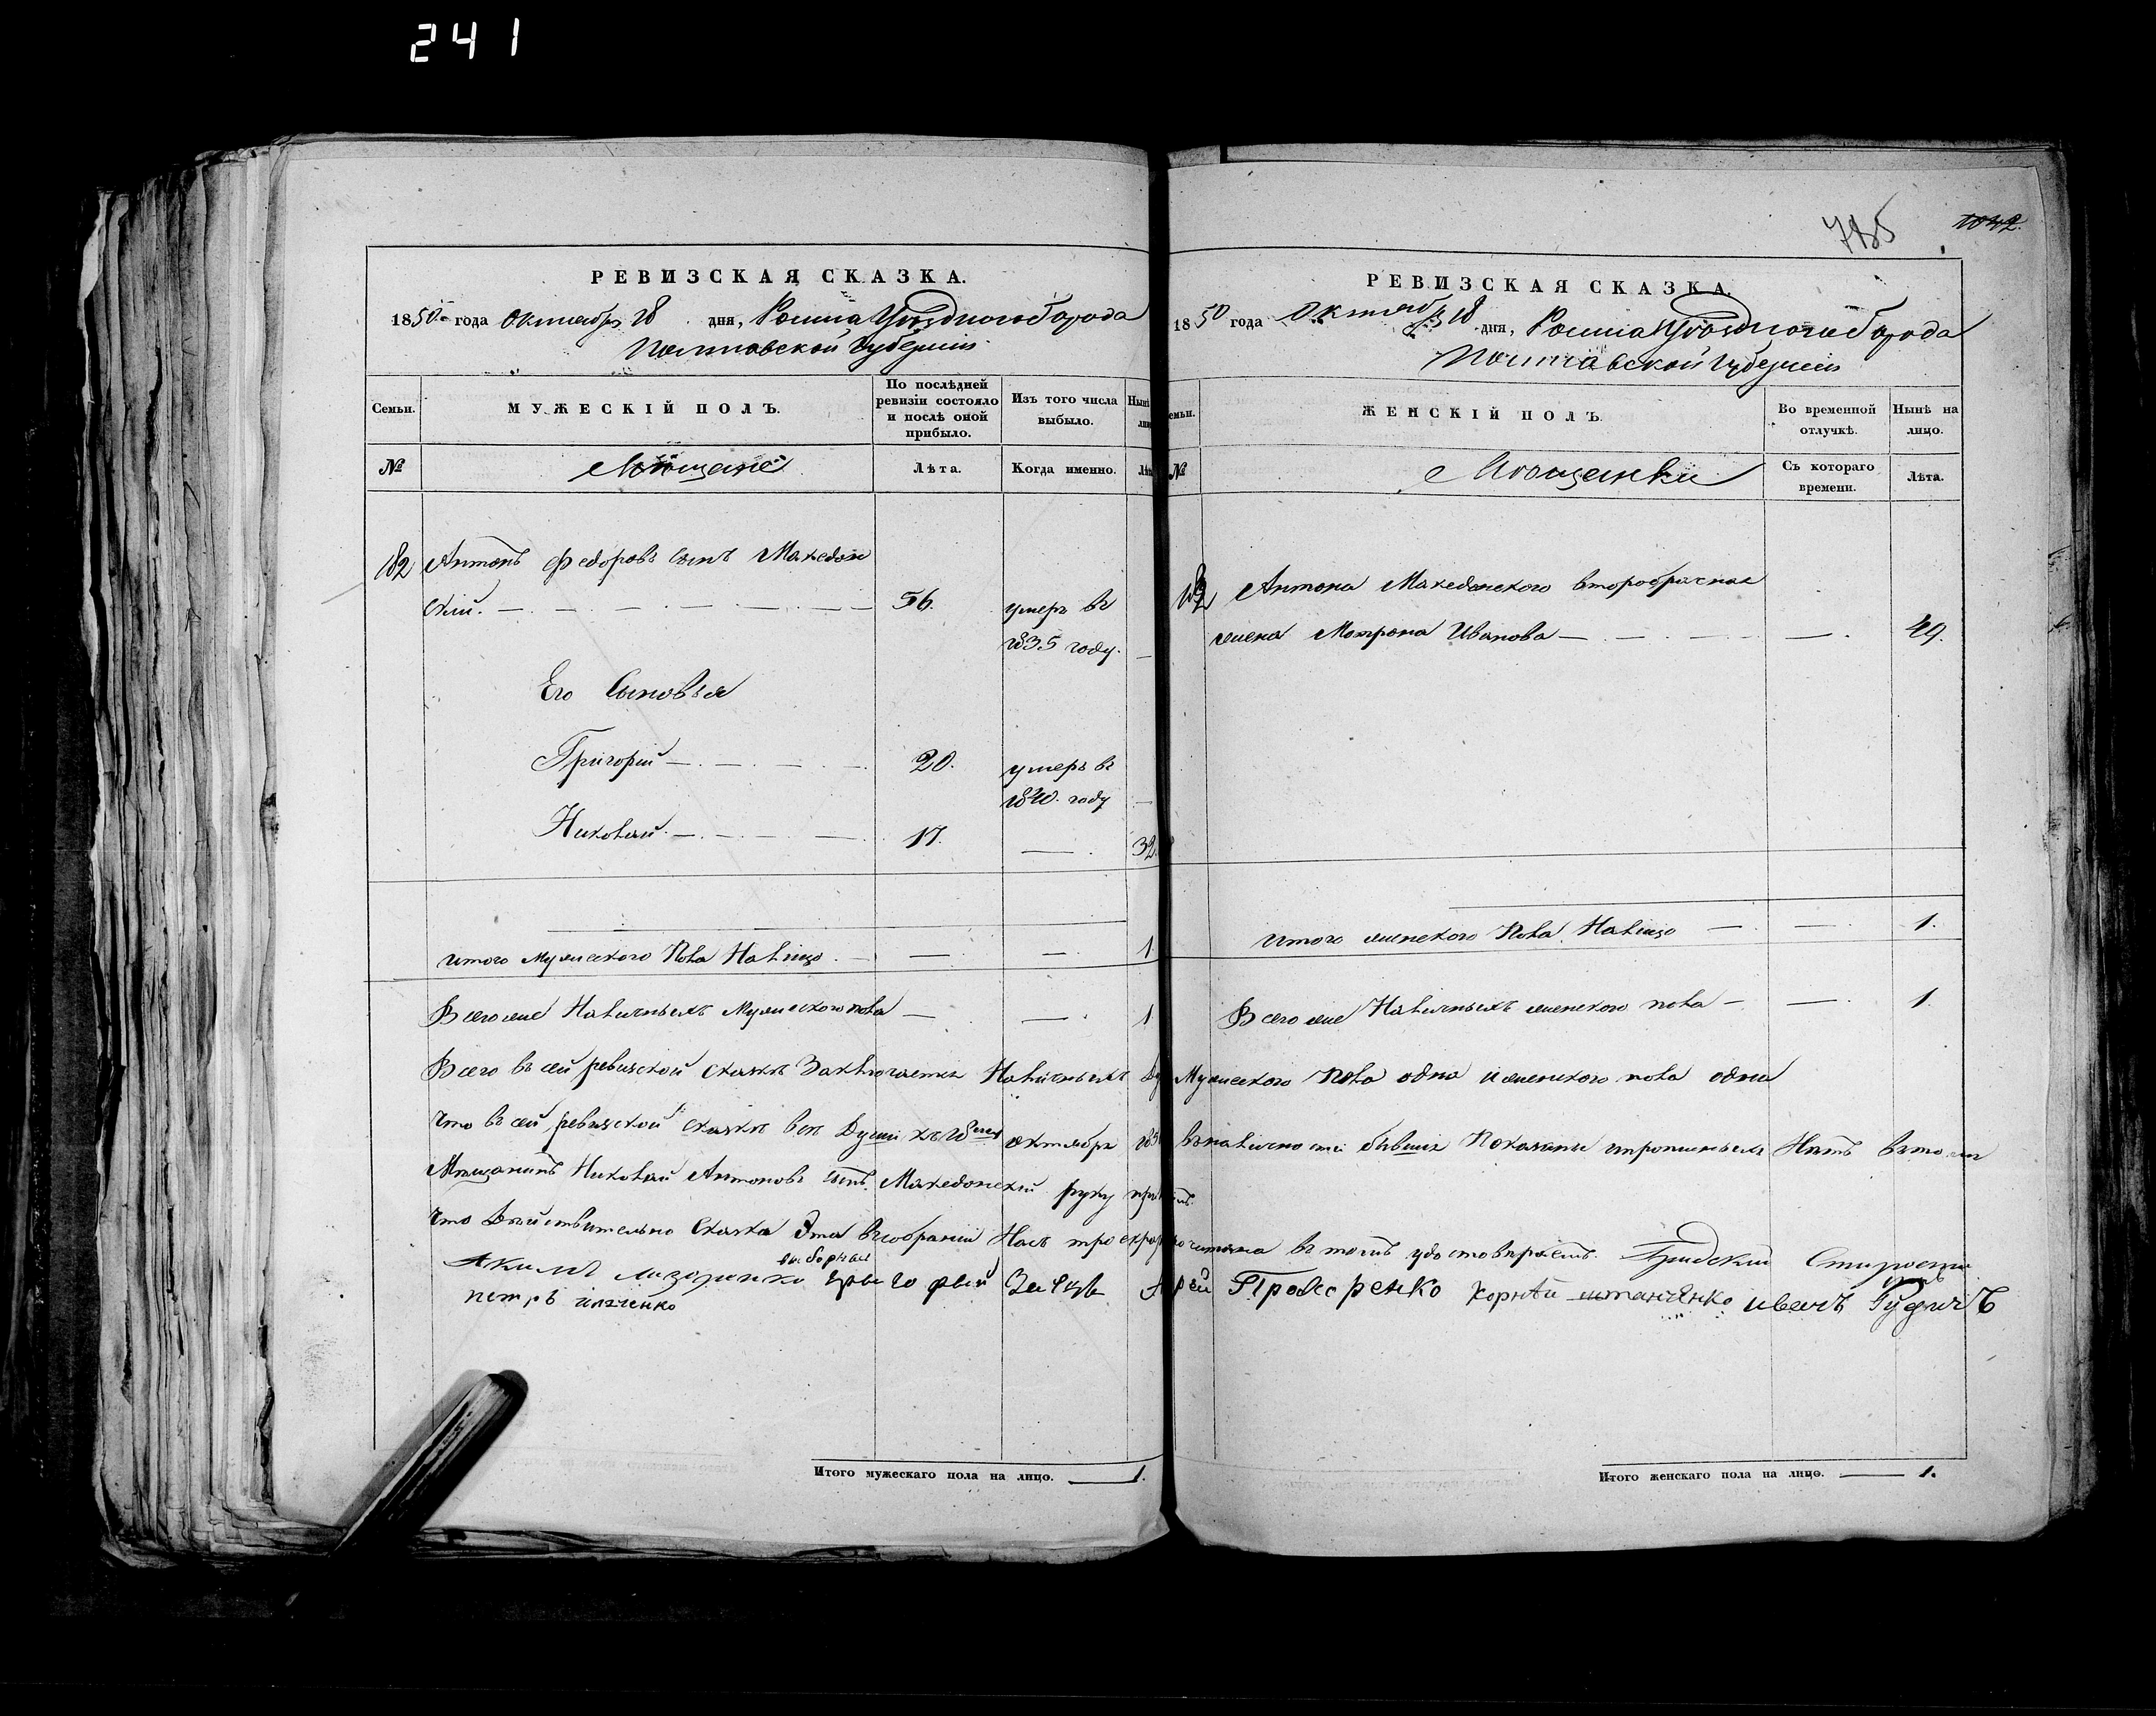 241
785
1042.
РЕВИЗСКАЯ СКАЗКА.
1850 года Октября 18 дня, Ромна Уѣзднаго Города
Полтавской Губернiи
Семьи.
МУЖЕСКІЙ ПОЛЪ.
По послѣдней ревизіи состояло и послѣ оной прибыло.
Изъ того числа выбыло.
№
Мѣщане
Лѣта.
Когда именно.
182 Антонъ Федоровъ сынъ Македон
скій. 56. умеръ въ
1835 году.
Его Сыновья
Григорій 20. умеръ въ
1840. году
Николай 17. 32.
Итого Мужескаго Пола На лицо 1.
Всего же Наличныхъ Мужескаго пола 1
Итого мужескаго пола на лицо. 1.
РЕВИЗСКАЯ СКАЗКА.
1850 года Октября 18 дня, Ромна Уѣзднаго Города
Полтавской Губернiи
ЖЕНСКІЙ ПОЛЪ.
Во временной отлучкѣ.
Нынѣ на лицо.
№
Мѣщанки
Съ котораго времени.
Лѣта.
182 Антона Македонского второбрачная
жена Мотрона Иванова 49.
Итого женского Пола На лицо 1.
Всего же Наличныхъ женского пола 1
Всего въ сей ревизской сказкѣ Заключается Наличныхъ Мужеского Пола одна и женского пола одна
Что въ сей ревизской сказкѣ всѣ Души къ 18 октября въ наличности бывшiя Показаны и прописныхъ Нѣтъ въ томъ
Мѣщанинъ Николай Антоновъ сынъ Македонскій руку
Что Дѣйствительно Сказка Эта въ собраніи Насъ в томъ удостовѣряемъ. Градскій Староста
выборные
петръ
Корнѣй иванъ
Итого женскаго пола на лицо. 1.